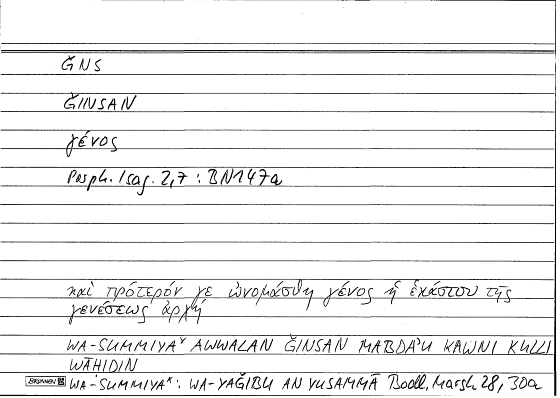 ĞNS
ĞINSAN
γένος
Porph. Isag. 2,7 : BN147a
καὶ πρότερόν γε ὠνομάσθη γένος ἡ ἑκάστου τῆς
γενέσεως ἀρχή
WA-SUMMIYAˣ AWWALAN ĞINSAN MABDAʾU KAWNI KULLI
WĀḤIDIN
BRUNNEN WA-SUMMIYAˣ : WA-YAĞIBU AN YUSAMMĀ Bodl. Marsh 28, 30a